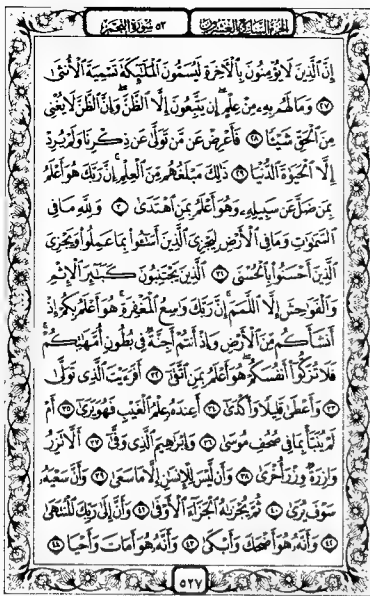 الجزء السابع والعشرون ٥٣ سورة النجم
إِنَّ ٱلَّذِينَ لَا يُؤْمِنُونَ بِٱلْأَخِرَةِ لَيُسَمُّونَ ٱلْمَلَٰٓئِكَةَ تَسْمِيَةَ ٱلْأُنثَىٰ
٢٧ وَمَا لَهُم بِهِۦ مِنْ عِلْمٍ ۖ إِن يَتَّبِعُونَ إِلَّا ٱلظَّنَّ ۖ وَإِنَّ ٱلظَّنَّ لَا يُغْنِى
مِنَ ٱلْحَقِّ شَيْـًٔا ٢٨ فَأَعْرِضْ عَن مَّن تَوَلَّىٰ عَن ذِكْرِنَا وَلَمْ يُرِدْ
إِلَّا ٱلْحَيَوٰةَ ٱلدُّنْيَا ٢٩ ذَٰلِكَ مَبْلَغُهُم مِّنَ ٱلْعِلْمِ ۚ إِنَّ رَبَّكَ هُوَ أَعْلَمُ
بِمَن ضَلَّ عَن سَبِيلِهِۦ وَهُوَ أَعْلَمُ بِمَنِ ٱهْتَدَىٰ ٣٠ وَلِلَّهِ مَا فِى
ٱلسَّمَٰوَٰتِ وَمَا فِى ٱلْأَرْضِ لِيَجْزِىَ ٱلَّذِينَ أَسَٰٓـُٔوا۟ بِمَا عَمِلُوا۟ وَيَجْزِىَ
ٱلَّذِينَ أَحْسَنُوا۟ بِٱلْحُسْنَى ٣١ ٱلَّذِينَ يَجْتَنِبُونَ كَبَٰٓئِرَ ٱلْإِثْمِ
وَٱلْفَوَٰحِشَ إِلَّا ٱللَّمَمَ ۚ إِنَّ رَبَّكَ وَٰسِعُ ٱلْمَغْفِرَةِ ۚ هُوَ أَعْلَمُ بِكُمْ إِذْ
أَنشَأَكُم مِّنَ ٱلْأَرْضِ وَإِذْ أَنتُمْ أَجِنَّةٌ فِى بُطُونِ أُمَّهَٰتِكُمْ ۖ
فَلَا تُزَكُّوٓا۟ أَنفُسَكُمْ ۖ هُوَ أَعْلَمُ بِمَنِ ٱتَّقَىٰٓ ٣٢ أَفَرَءَيْتَ ٱلَّذِى تَوَلَّىٰ
٣٣ وَأَعْطَىٰ قَلِيلًا وَأَكْدَىٰٓ ٣٤ أَعِندَهُۥ عِلْمُ ٱلْغَيْبِ فَهُوَ يَرَىٰٓ ٣٥ أَمْ
لَمْ يُنَبَّأْ بِمَا فِى صُحُفِ مُوسَىٰ ٣٦ وَإِبْرَٰهِيمَ ٱلَّذِى وَفَّىٰٓ ٣٧ أَلَّا تَزِرُ
وَازِرَةٌ وِزْرَ أُخْرَىٰ ٣٨ وَأَن لَّيْسَ لِلْإِنسَٰنِ إِلَّا مَا سَعَىٰ ٣٩ وَأَنَّ سَعْيَهُۥ
سَوْفَ يُرَىٰ ٤٠ ثُمَّ يُجْزَىٰهُ ٱلْجَزَآءَ ٱلْأَوْفَىٰ ٤١ وَأَنَّ إِلَىٰ رَبِّكَ ٱلْمُنتَهَىٰ
٤٢ وَأَنَّهُۥ هُوَ أَضْحَكَ وَأَبْكَىٰ ٤٣ وَأَنَّهُۥ هُوَ أَمَاتَ وَأَحْيَا ٤٤
٥٢٧